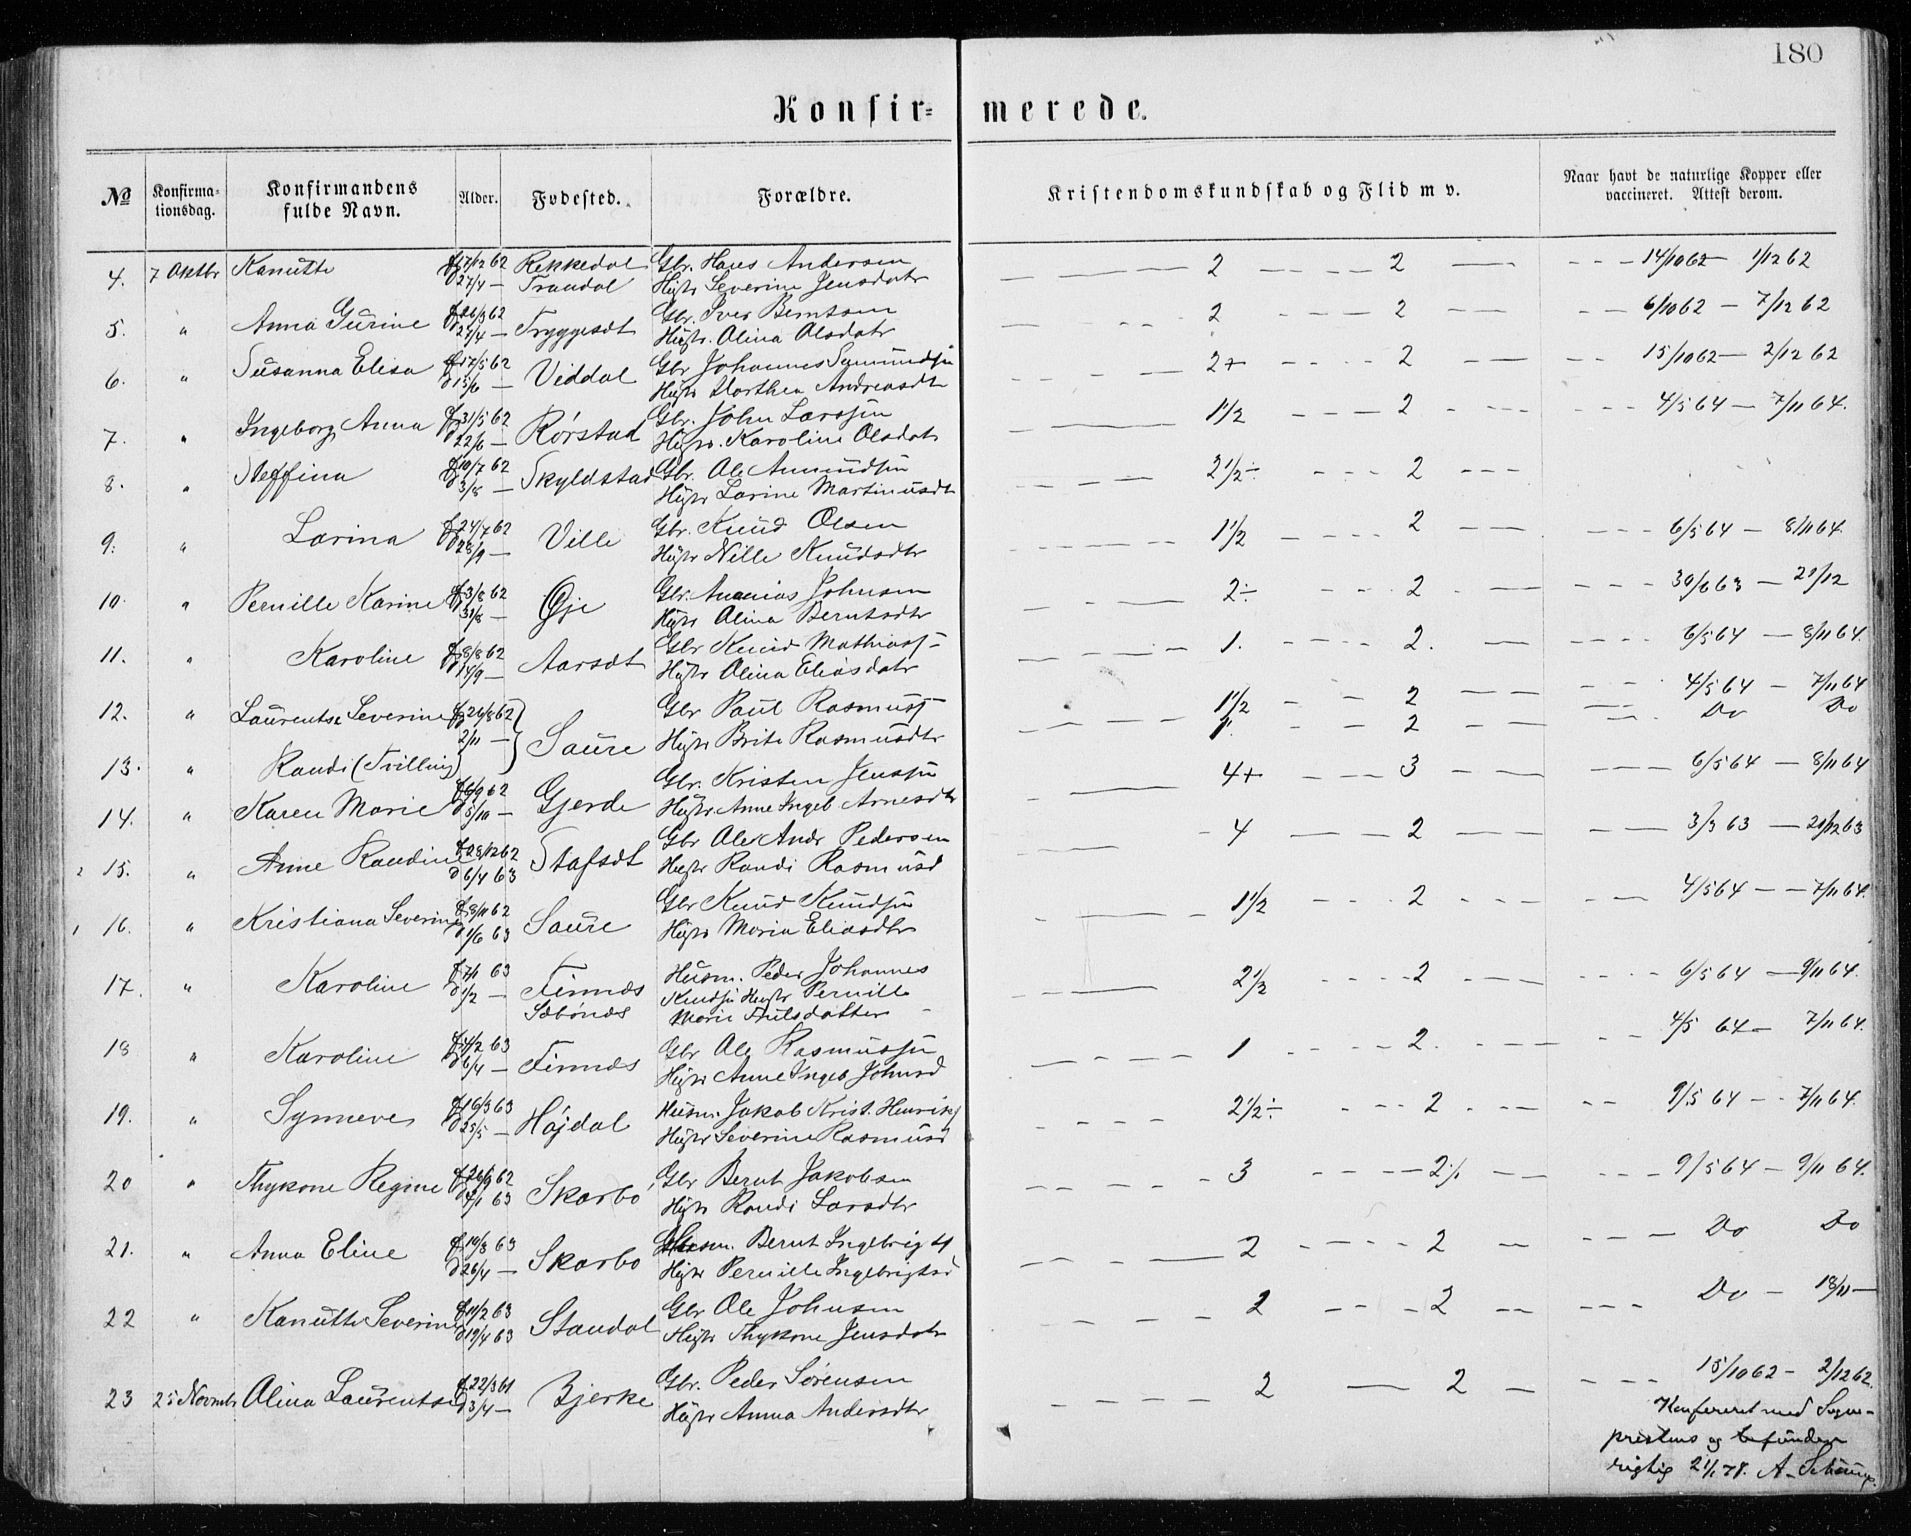 180
Konfir= merede.
№ Konfirma-tionsdag. Konfirmandens fulde Navn. Alder. Fødested. Forældre. Kristendomskundskab og Flid m v. Naar havt de naturlige Kopper eller vaccineret. Attest derom.
4. 7 Oktbr Kanutte f 17/12 62 Rekkedal Gbr. Hans Andersen 2 2 14/10 62 — 1/12 62
d 27/4 — Trandal Hustr Severine Jensdatr
5. " Anna Gurine f 26/3 62 Tryggesdt Gbr. Iver Berntsen 2 2 6/10 62 — 7/12 62
d 21/4 — Hustr. Olina Olsdatr
6. " Susanna Elisa f 17/5 62 Viddal Gbr Johannes 2+ 2 15/10 62 — 2/12 62
d 15/6 — Hustr Dorthea Andreasdtr
7. " Ingeborg Anna f 31/5 62 Rörstad Gbr. John Larssen 1 1/2 2 4/5 64 — 7/11 64.
d 22/6 — Hustr. Karoline Olsdatr
8. " Steffina f 10/7 62 Skyldstad Gbr. Ole Amundsen 2 1/2 ÷ 2
d 3/8 — Hustr Larine Martinusdt
9. " Larina f 24/7 62 Ville Gbr. Knud Olsen 1 1/2 2 6/5 64 — 8/11 64.
d 28/9 — Hustr Nille Knudsdtr
10. " Pernille Karine f 3/8 62 Øje Gbr. Ananias Johnsen 2÷ 2 30/6 63 — 21/12
d 31/8 — Hustr Olina Berntsdtr
11. " Karoline f 8/8 62 Aarsdt Gbr Knud Mathiass 1. 2. 6/5 64 — 8/11 64.
d 14/9 — Hustr Olina Eliasdatr
12. " Laurentse Severine f 26/8 62 Saure Gbr Paul Rasmuss 1 1/2 2 4/5 64 — 7/11 64
2/11 — Hustr Brite Rasmusdtr 1. 2 Do Do
13. " Randi (Tvilling)
14. " Karen Marie f 6/9 62 Gjerde Gbr. Kristen Jenssen 4+ 3 6/5 64 — 8/11 64
d 5/10 — Hustr Anne Ingeb Arnesdtr
2 15. " Anne Randine f 28/12 62 Stafsdt Gbr Ole Andr Pedersen 4 2 3/3 63 — 21/12 63
d 6/4 63 Hustr Randi Rasmusd
1 16. " Kristiana Severine f 8/11 62 Saure Gbr Knud Knudsen 1 1/2 2 4/5 64 — 7/11 64.
d 1/6 63 Hustr Maria Eliasdtr
17. " Karoline f 7/1 63 Finnæs Husm. Peder Johannes 2 1/2 2 6/5 64 — 9/11 64.
d 1/2 — Sæbönæs Knudsen Hustr Pernille
Marie datter
18 " Karoline f 4/2 63 Finnæs Gbr Ole Rasmussen 1 2. 4/5 64 — 7/11 64.
d 6/4 — Hustr Anne Ingeb Johnsd
19. " Synneve f 16/3 63 Höjdal Husm. Jakob Krist. Henriks 2 1/2 ÷ 2 9/5 64 — 7/11 64.
d 25/5 — Hustr Severine Rasmusd
20 " Thykone Regine f 26/9 62 Skarbö Gbr Bernt Jakobsen 3 2 9/5 64 — 9/11 64.
d 4/1 63 Hustr Randi Larsdtr
21. " Anna Eline f 19/3 63 Skarbö Husm. Bernt Ingebrigts 2 2 Do Do
d 26/4 — Hustr Pernille Ingebrigtsd
22 " Kanutte Severine f 11/2 63 Standal Gbr Ole Johnsen 2 2 Do — 18/11 —
d 19/4 63 Hustr Thykone Jensdatr
23 25 Novmbr Olina Laurentse f 22/3 61 Bjerke Gbr. Peder Sörensen 2 2 15/10 62 — 2/12 62.
d 3/4 — Hustr Anna Andersdtr
Konfereret med Sogne-
prestens og befunden
rigtig 21/1 78. A.